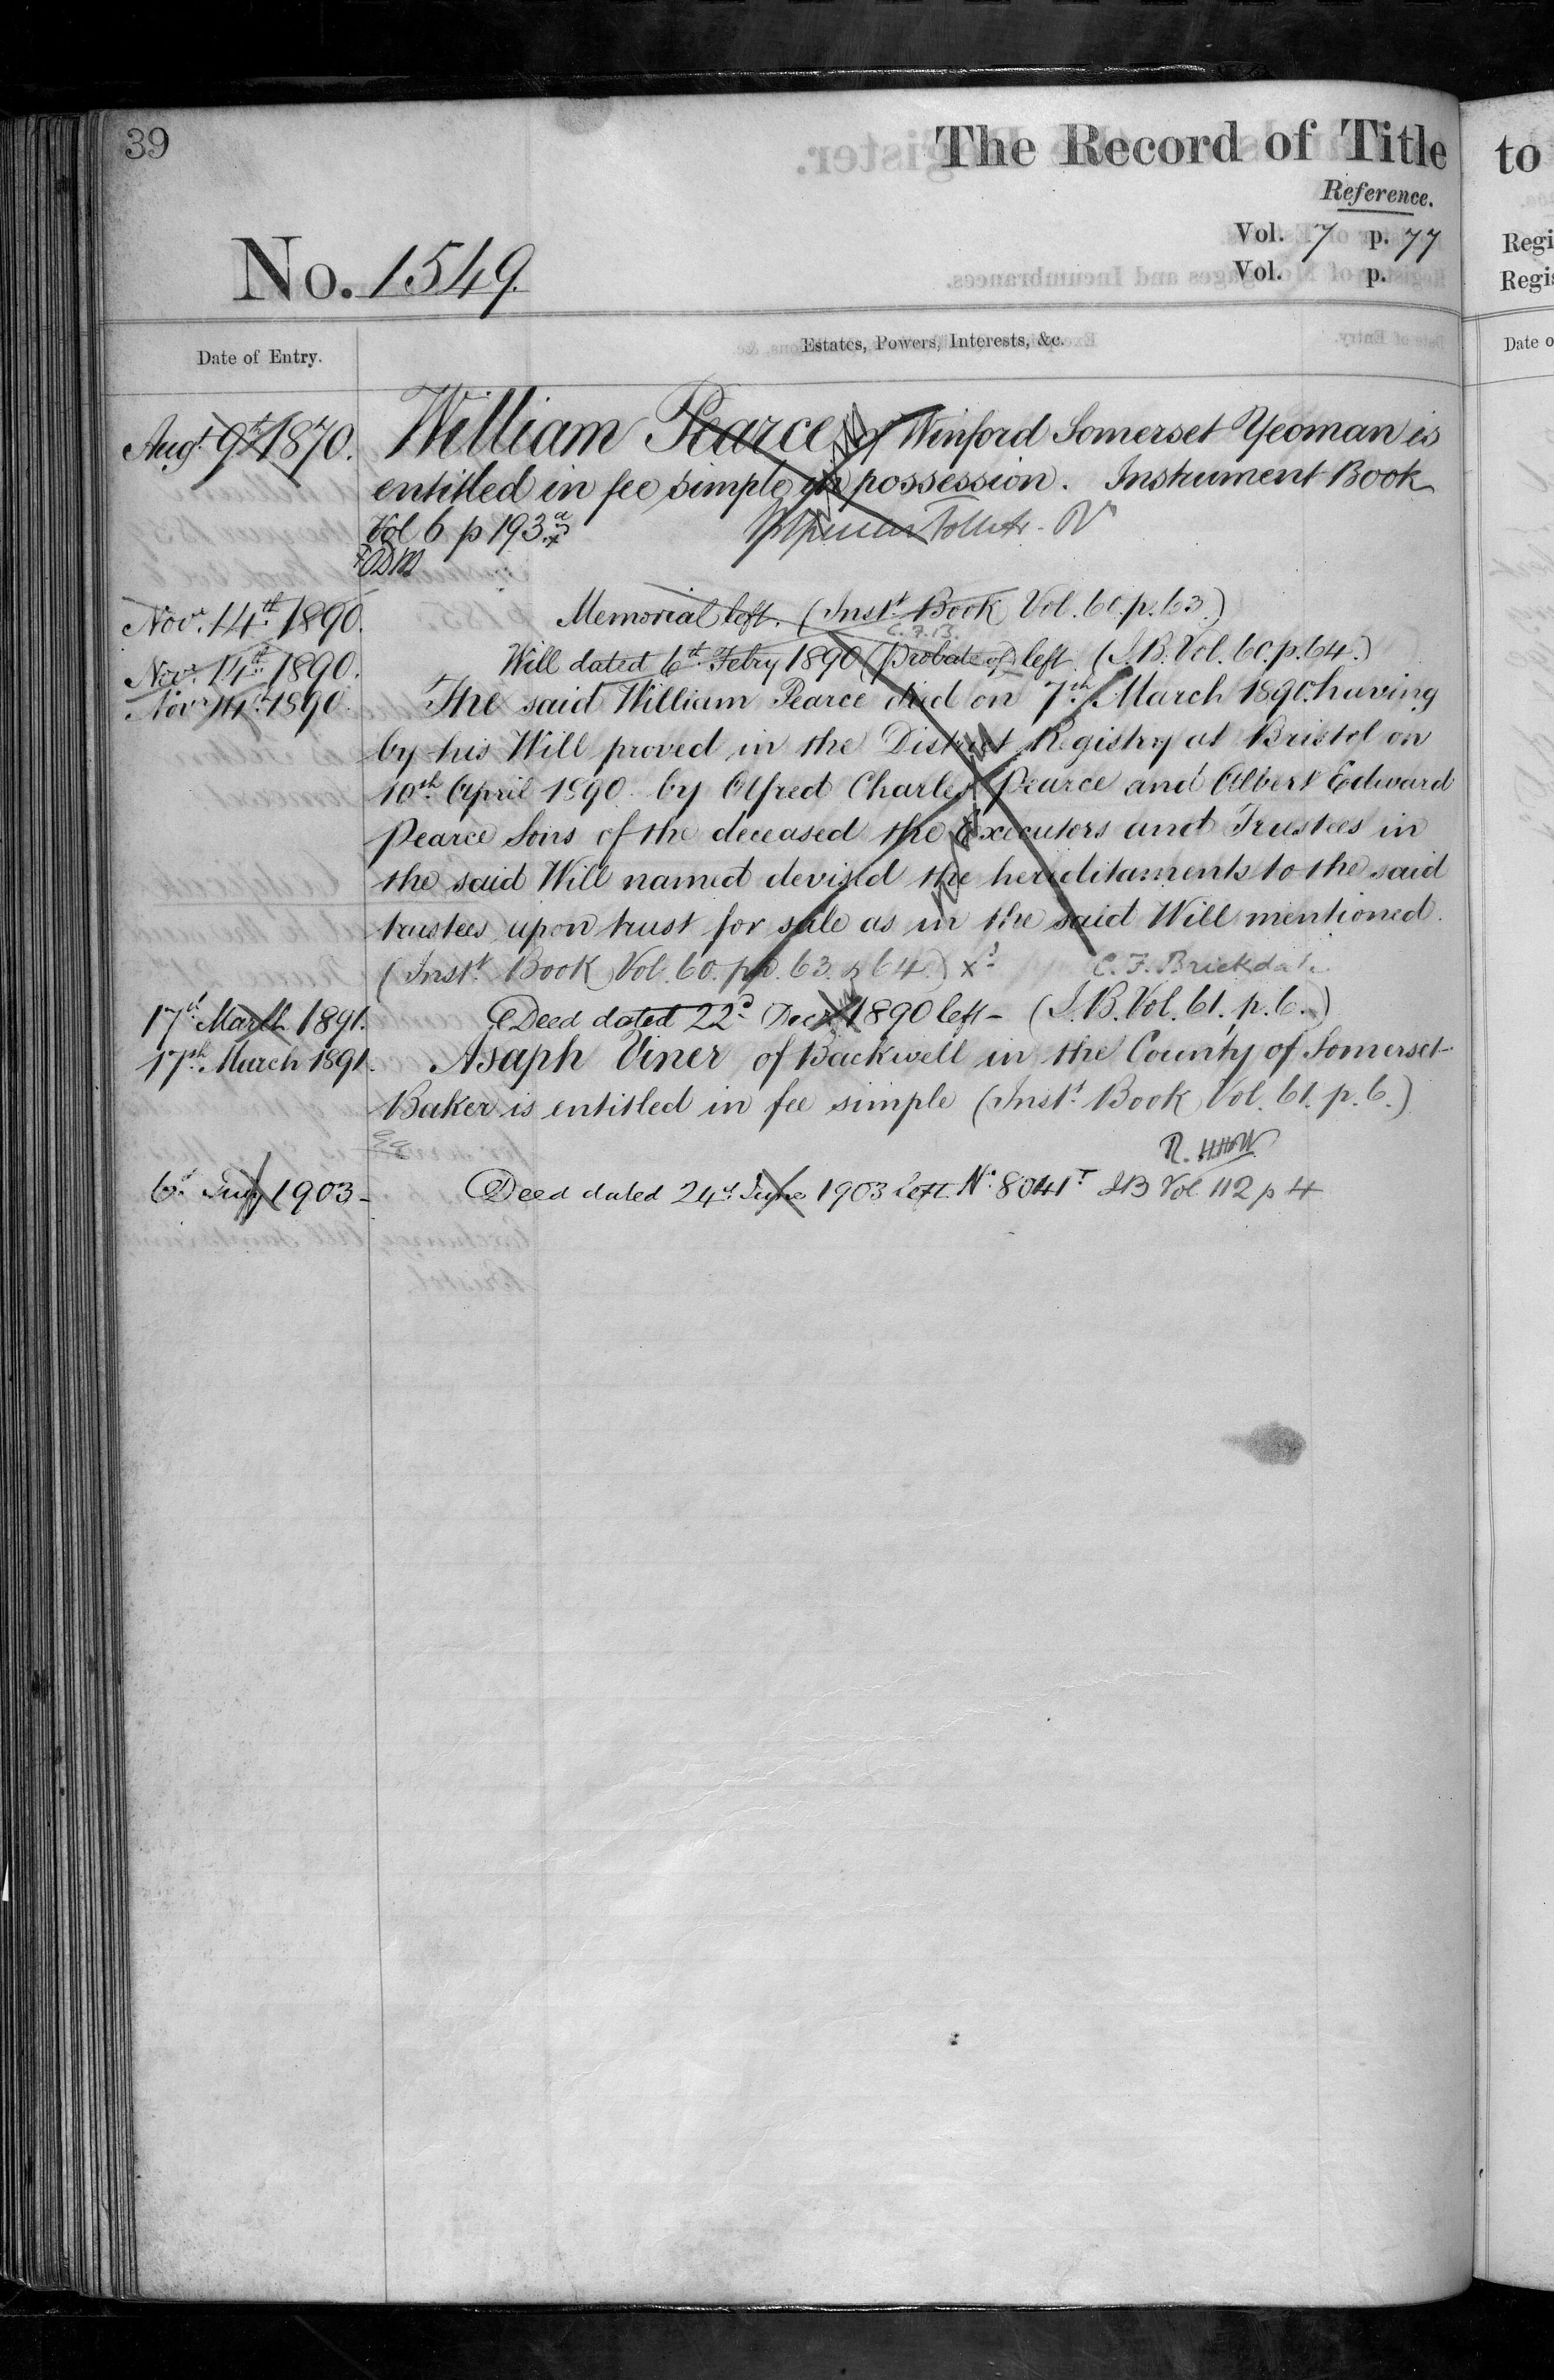 39
The Record of Title
Reference.
Vol. 7 p. 77
Vol. p.
No. 1549.
Date of Entry.
Estates, Powers, Interests, &c.
Augt. 9th 1870. William Pearce of Winford Somerset Yeoman is
entitled in fee simple in possession. Instrument Book
Vol 6 p 193
Novr. 14th 1890. Memorial left. (Instt. Book Vol. 60. p. 63.)
C.F.B.
Novr. 14th 1890. Will dated 6th Febry 1890 (Probate of) left. (I.B. Vol. 60. p. 64.)
Novr 14th 1890. The said William Pearce died on 7th March 1890. having
by his Will proved in the District Registry at Bristol on
10th April 1890 by Alfred Charles Pearce and Albert Edward
Pearce Sons of the deceased the Executors and Trustees in
the said Will named devised the hereditaments to the said
trustees upon trust for sale as in the said Will mentioned.
(Instt. Book Vol. 60. pp. 63. & 64.) C. F. Brickdale
17th March 1891. Deed dated 22d Decr 1890 left - (I.B. Vol. 61. p. 6.)
17th March 1891. Asaph Viner of Backwell in the County of Somerset
Baker is entitled in fee simple (Instt. Book Vol. 61. p. 6.)
6th July 1903 - Deed dated 24th June 1903 left. No. 8041 I B Vol 112 p 4
to
Regi
Regis
Date o